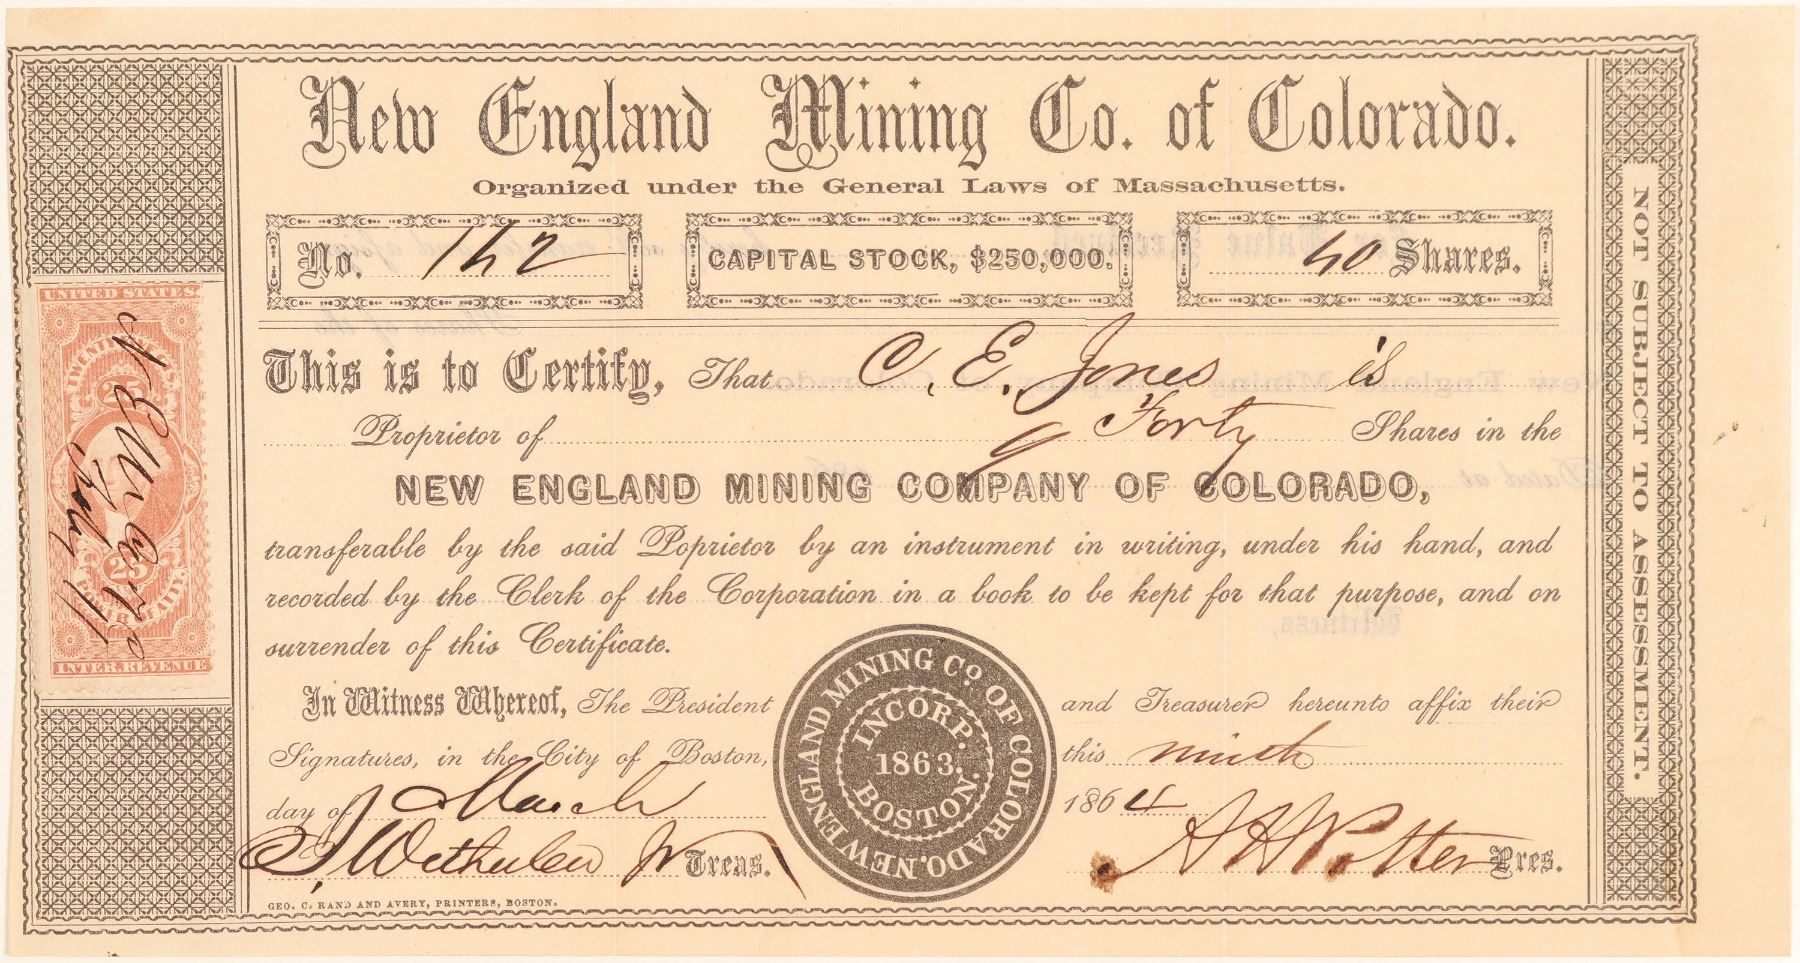 New England Mining Co. of Colorado.
Organized under the General Laws of Massachusetts.
No. 142
CAPITAL STOCK, $250,000.
40 Shares.
This is to Certify, That C. E. Jones is
Proprietor of Forty Shares in the
NEW ENGLAND MINING COMPANY OF COLORADO,
transferable by the said Poprietor by an instrument in writing, under his hand, and
recorded by the Clerk of the Corporation in a book to be kept for that purpose, and on
surrender of this Certificate.
In Witness Whereof, The President and Treasurer hereunto affix their
Signatures, in the City of Boston, this ninth
day of March 1864
Wetherbee Jr Treas.
A H Potter Pres.
GEO. C. RAND AND AVERY, PRINTERS, BOSTON.
NEW ENGLAND MINING CO. OF COLORADO.
INCORP.
1863.
BOSTON.
NOT SUBJECT TO ASSESSMENT.
UNITED STATES
TWENTY
25
25
INTER. REVENUE